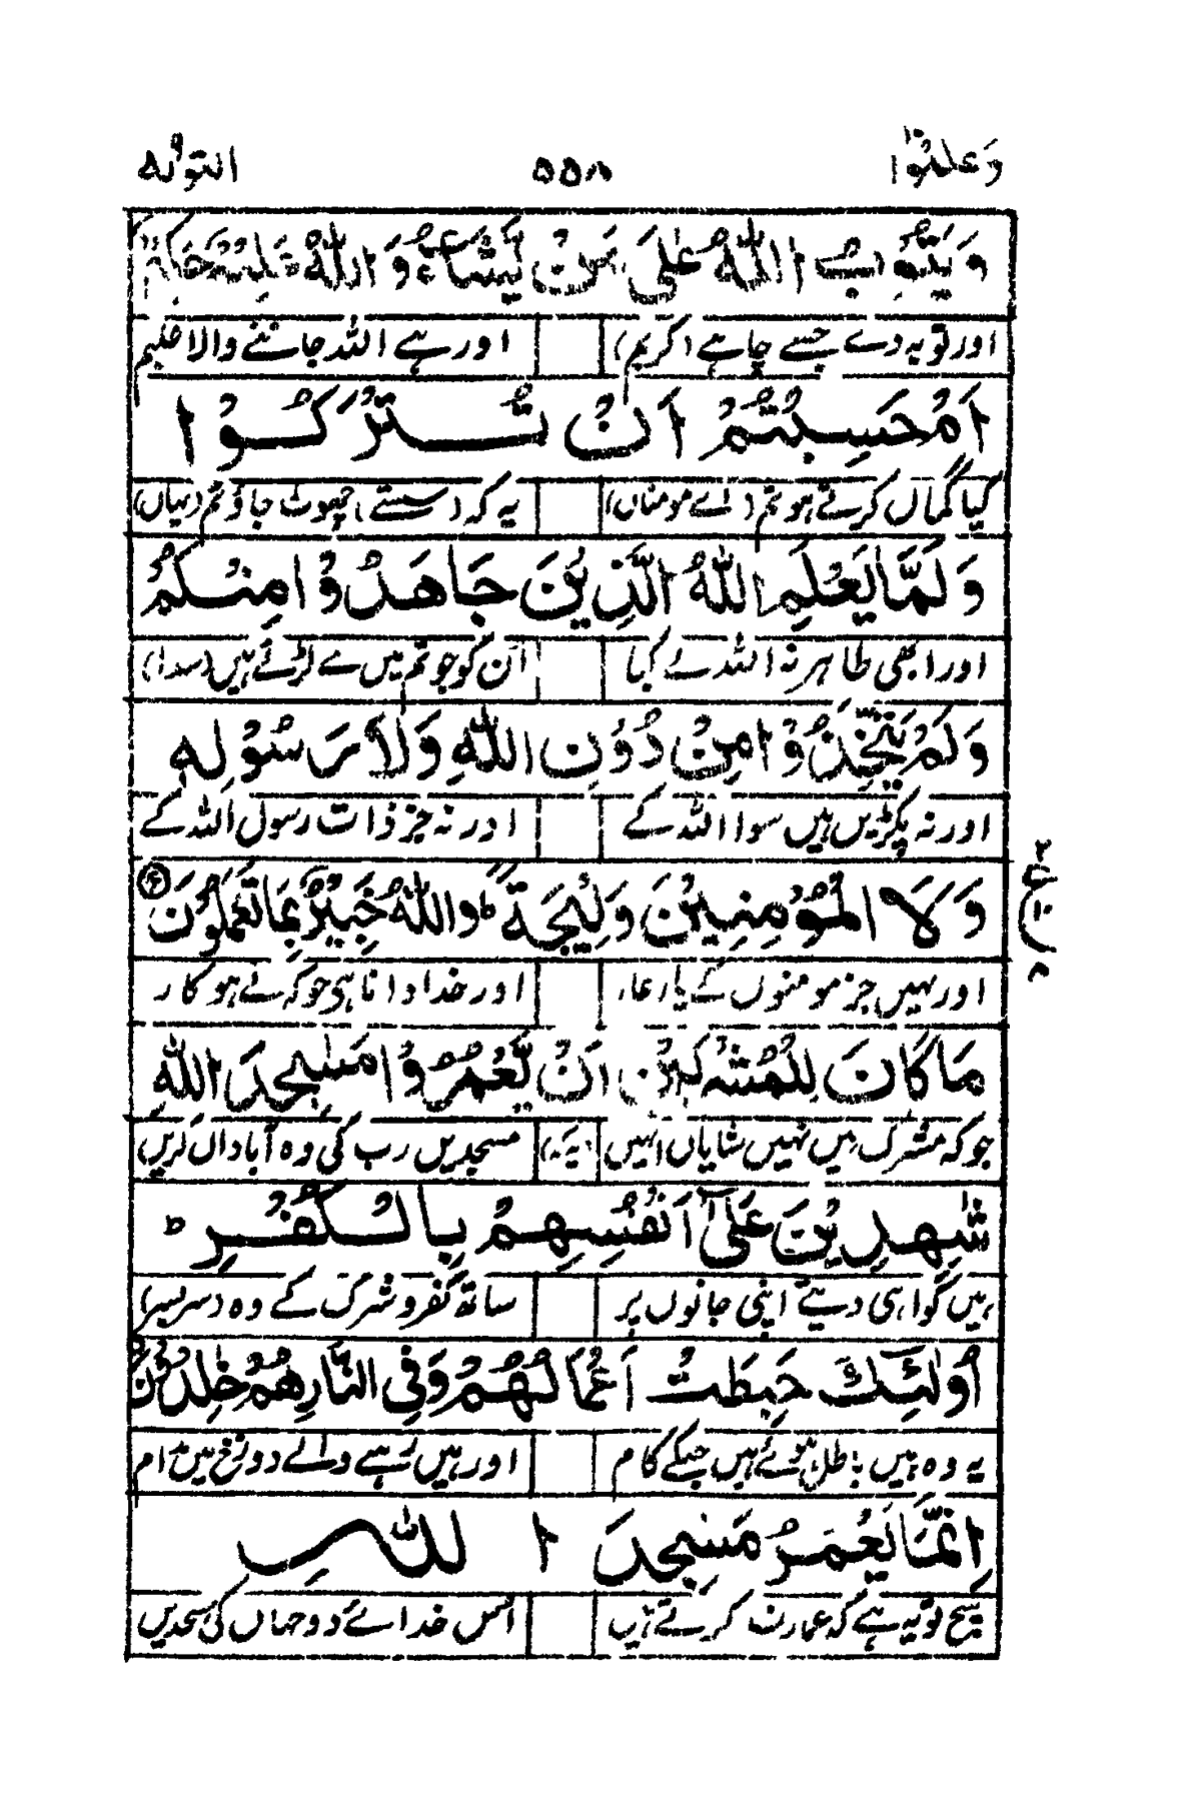 وَعلمُوٓا ۵۵۸ التوبہ
وَيَتُوْبُ اللّٰهُ عَلٰى مَنْ يَّشَآءُ وَاللّٰهُ عَلِيْمٌ حَكِيْمٌ
اور توبہ دے جسے چاہے (کریم) اور ہے اللہ جاننے والا حکیم
اَمْ حَسِبْتُمْ اَنْ تُتْرَكُوْا
کیا گماں کرتے ہو تم (اے مومناں) یہ کہ (سستے) چھوٹ جاؤ تم (یہاں)
وَلَمَّا يَعْلَمِ اللّٰهُ الَّذِيْنَ جَاهَدُوْا مِنْكُمْ
اور ابھی ظاہر نہ اللہ نے کیا اُن کو جو تم میں سے لڑتے ہیں (سدا)
وَلَمْ يَتَّخِذُوْا مِنْ دُوْنِ اللّٰهِ وَلَا رَسُوْلِهٖ
اور نہ پکڑیں ہیں سوا اللہ کے اور نہ جز ذات رسول اللہ کے
وَلَا الْمُؤْمِنِيْنَ وَلِيْجَةً ؕ وَاللّٰهُ خَبِيْرٌۢ بِمَا تَعْمَلُوْنَ
اور نہیں جز مومنوں کے یار غار اور خدا دانا ہی جو کرتے ہو کار
۲ ع ۱۰ ۸
مَا كَانَ لِلْمُشْرِكِيْنَ اَنْ يَّعْمُرُوْا مَسٰجِدَ اللّٰهِ
جو کہ مشرک ہیں نہیں شایاں انہیں (یہ کہ) مسجدیں رب کی وہ آباداں کریں
شٰهِدِيْنَ عَلٰٓى اَنْفُسِهِمْ بِالْكُفْرِ ؕ
ہیں گواہی دیتے اپنی جانوں پر ساتھ کفر و شرک کے وہ (سربسر)
اُولٰٓئِكَ حَبِطَتْ اَعْمَالُهُمْ وَفِي النَّارِ هُمْ خٰلِدُوْنَ
یہ وہ ہیں باطل ہوئے ہیں جنکے کام اور ہیں رہنے والے دوزخ میں مدام
اِنَّمَا يَعْمُرُ مَسٰجِدَ اللّٰهِ
سچ تو یہ ہے کہ عمارت کرتے ہیں اُس خدائے دو جہاں کی مسجدیں